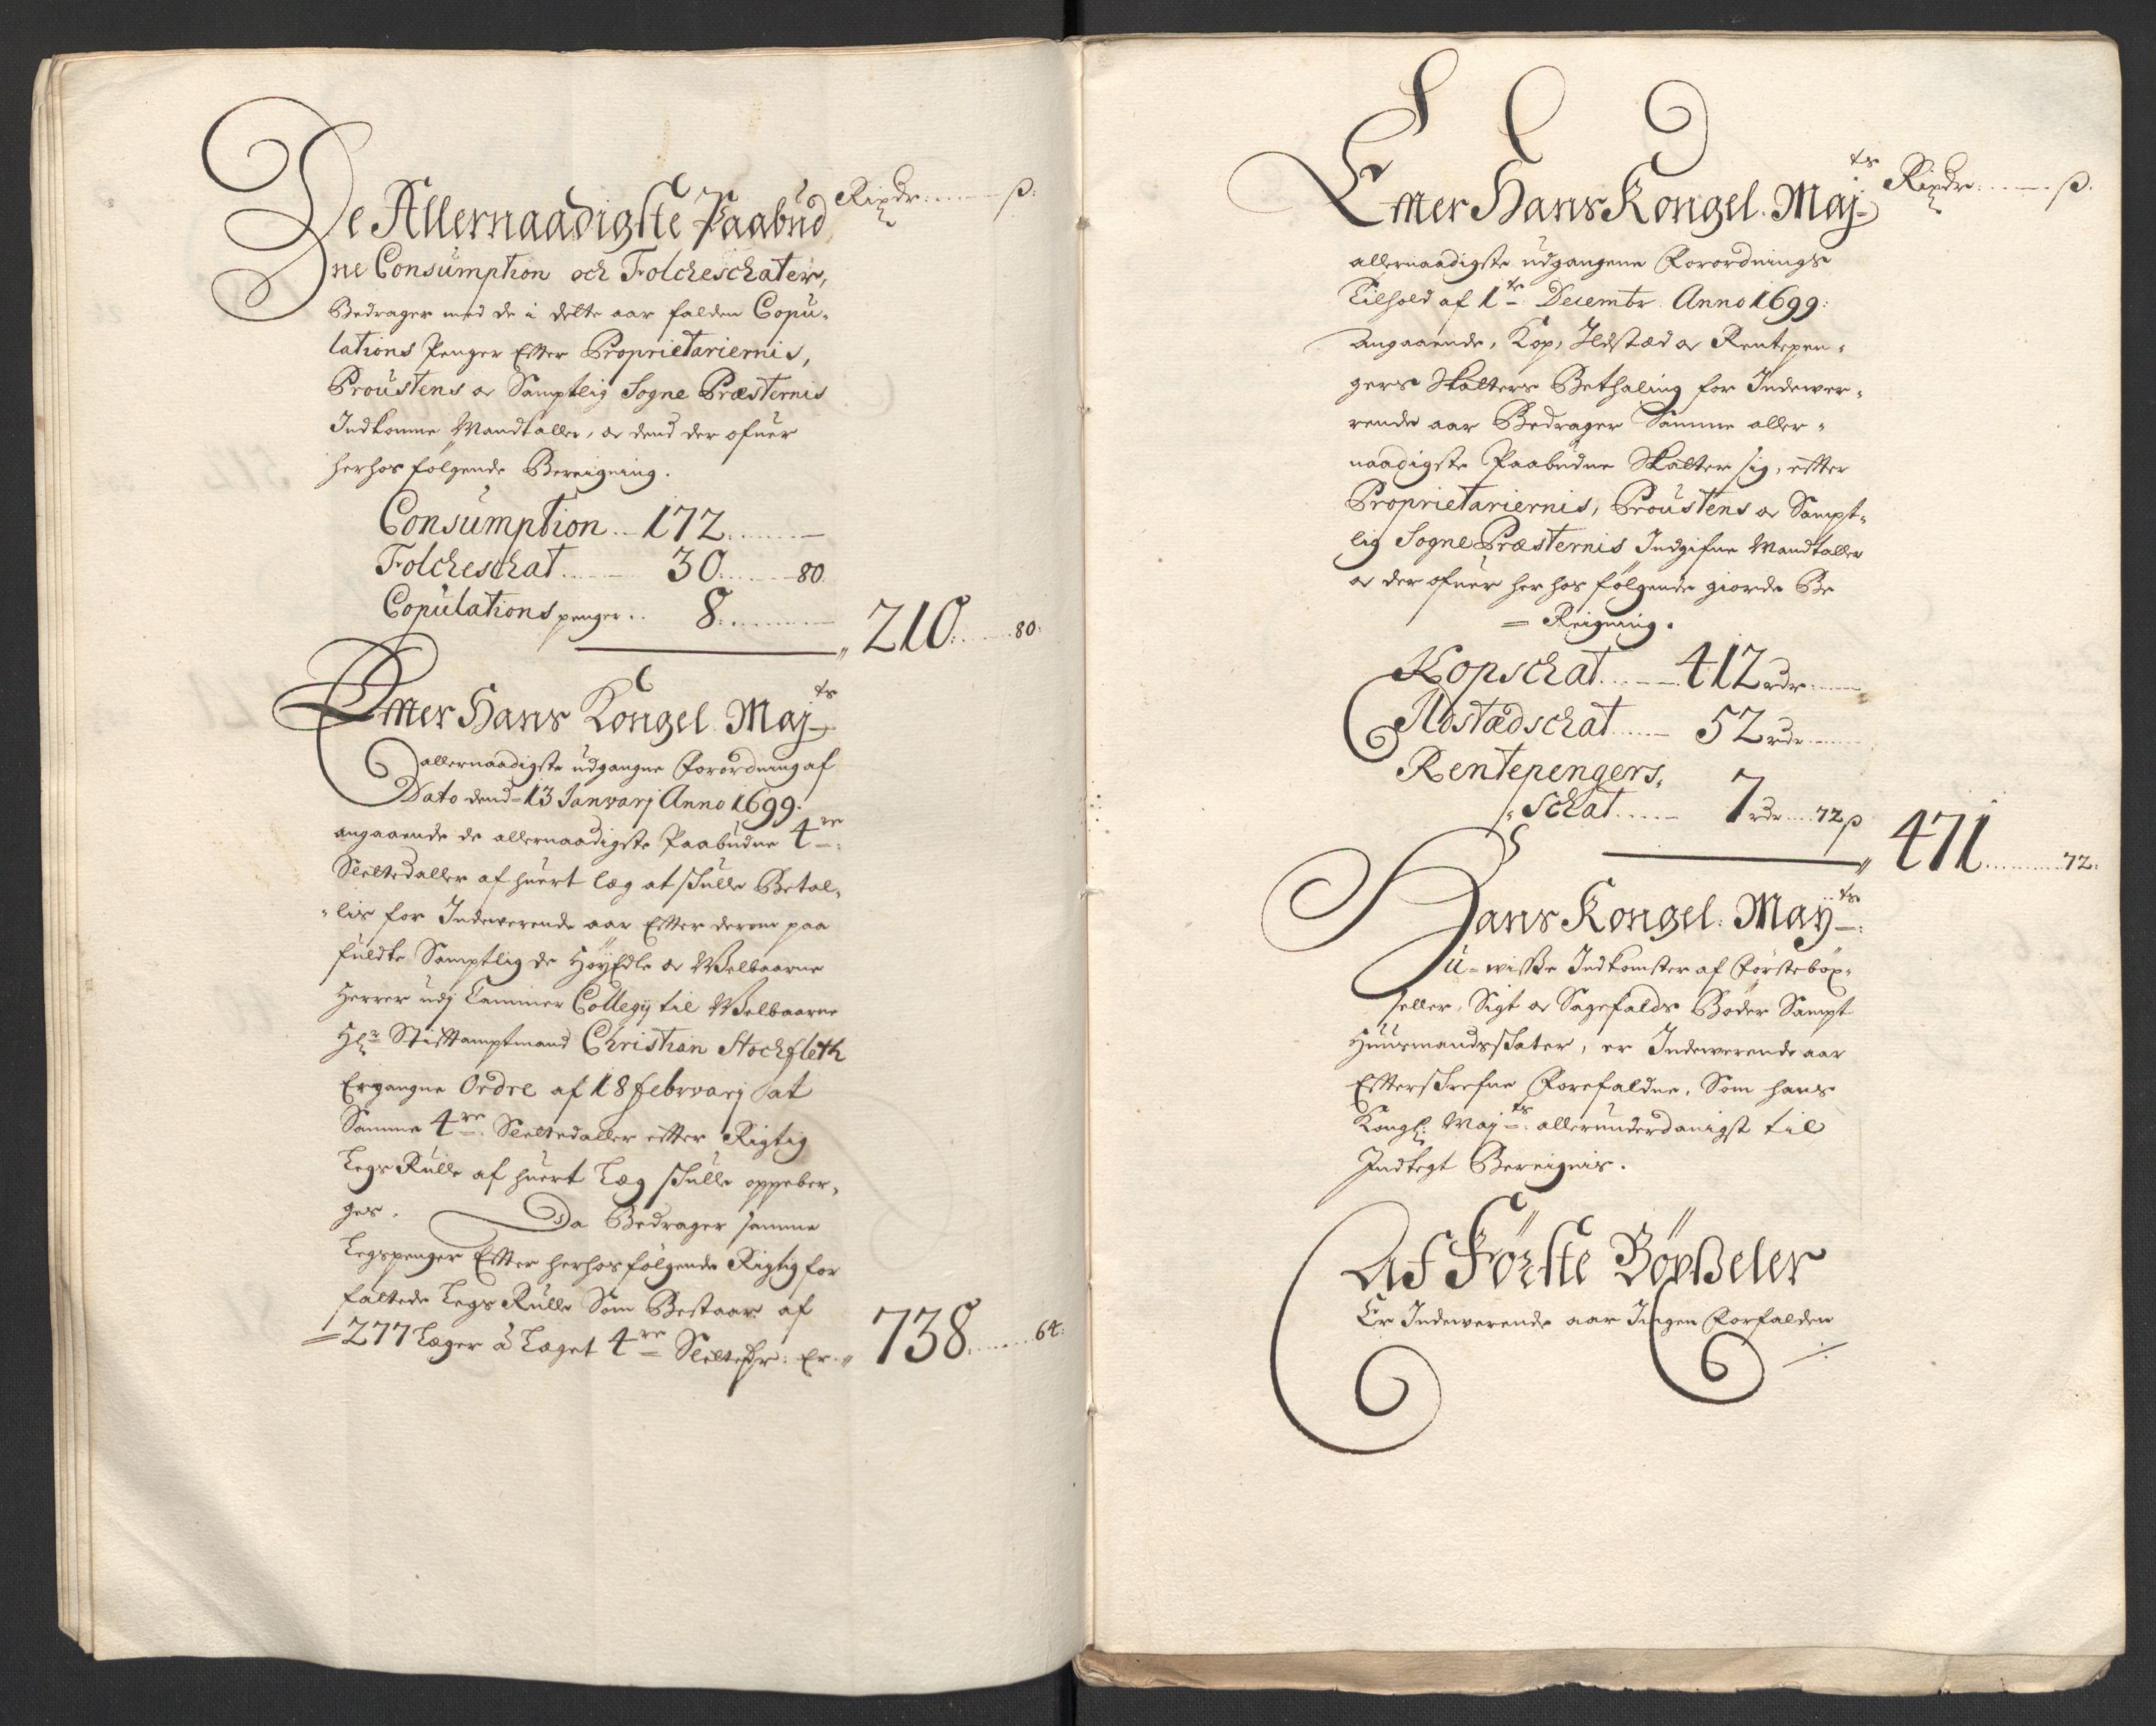 Rixdr ...... ß:
De Allernaadigste Paabud
ne Consumption och Folcheschater,
Bedrager med de i dette aar falden Copu-
lations Penger Efter Proprietariernis,
Proustens oc Samptlig Sogne Præsternis
Indkomne Mandtaller, oc dend der ofuer
herhos følgende Bereigning.
Consumption .. 172 ........ —
Folcheschat ........ 30 ........ 80.
Copulations penger .. 8 ........ — 210: ...... 80:
Efter Hans Kongel. Maj.ts
allernaadigste udgangne Forordning af
Dato dend 13 Janvarj Anno 1699.
angaaende de allernaadigste Paabudne 4re
Slettedaller af huert læg at skulle Betal-
-lis for Indewerende aar Efter derom paa
fuldte Samptlig de HøyEdle oc Welbaarne
Herrer udj Cammer Collegij til Welbaarne
Hr Stiftamptmand Christian Stochfleth
Ergangne Ordre af 18 Febrvarj at
Samme 4re Slettedaller efter Rigtig
Legs Rulle af huert Læg skulle oppeber-
ges. Da Bedrager samme
Legspenger Efter herhos følgende Rigtig for
fattede Legs Rulle Som Bestaar af
277 Læger à Læget 4re Slettedr: Er " 738 ...... 64:
Rixdr ...... ß.
Efter Hans Kongel. Maj.ts
allernaadigste udgangene Forordnings
Tilhold af 1te Decembr. Anno 1699:
Angaaende, Kop, Ildstæd oc Rentepen-
gers Skatters Bethaling for Indewer-
rende aar Bedrager Samme aller-
naadigste Paabudne Skatter sig, efter
Proprietariernis, Proustens oc Sampt-
lig Sogne Præsternis Indgifne Mandtaller
oc der ofuer her hos følgende giorde Be
= Reigning.
Kopschat ...... 412 rdr ......
Ildstædschat ...... 52 rdr ......
Rentepengers,
schat ...... 7 rdr .... 72 ß " 471 ........ 72:
Hans Kongel. Mayts:
U-wisse Indkomster af Førstebøx-
seller, Sigt oc Sagefalds Bøder Sampt
Huusmandsskater, er Indewerende aar
Efterskrefne Forefaldne, Som hans
Kongl: Majts: allerunderdanigst til
Indtegt Bereignis.
Af Første Böxßeler
Er Indewerende aar Ingen Forfalden
./.